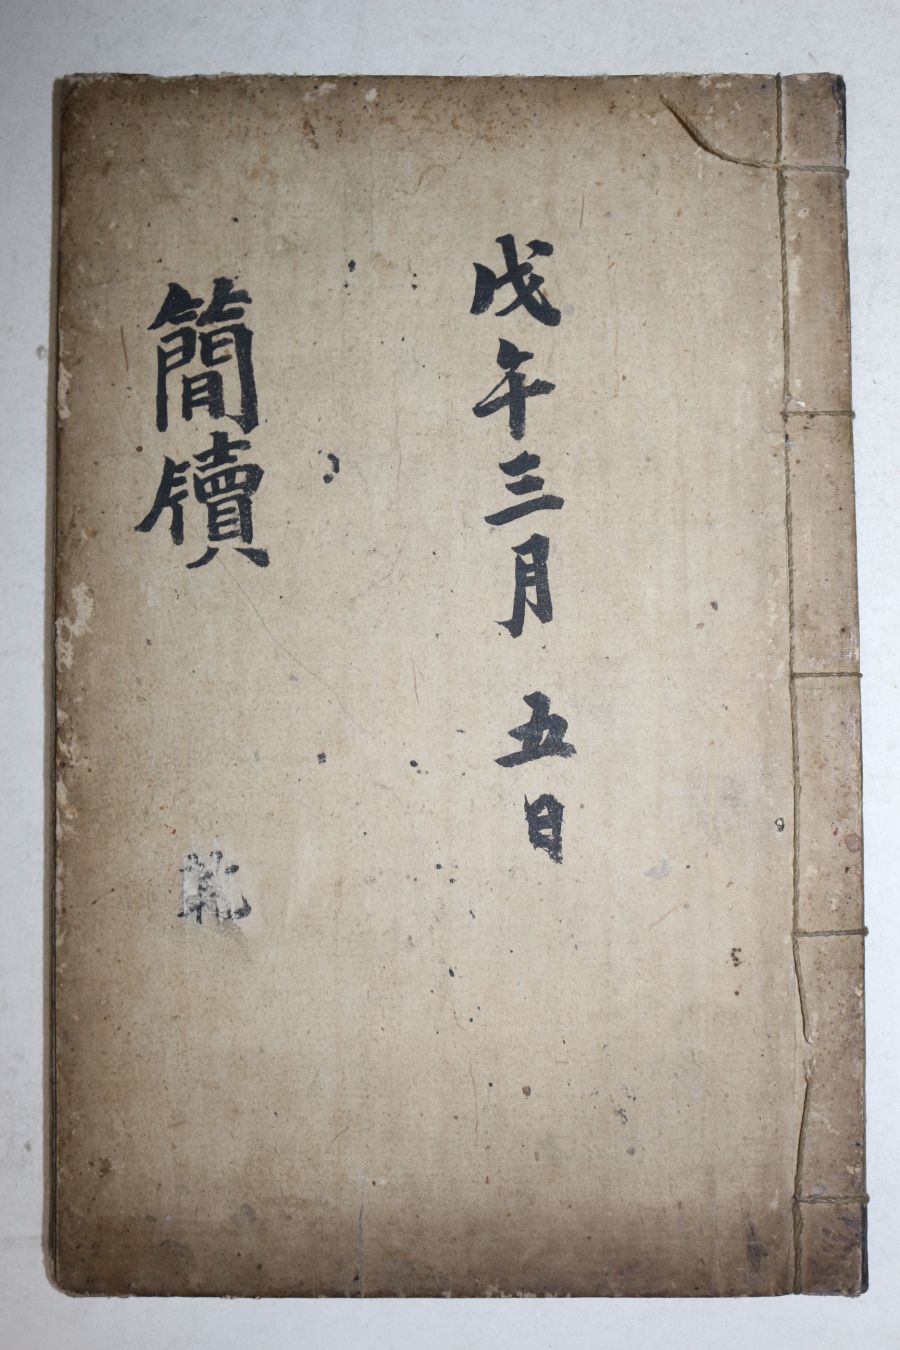 戊午三月 五日
簡牘
乾